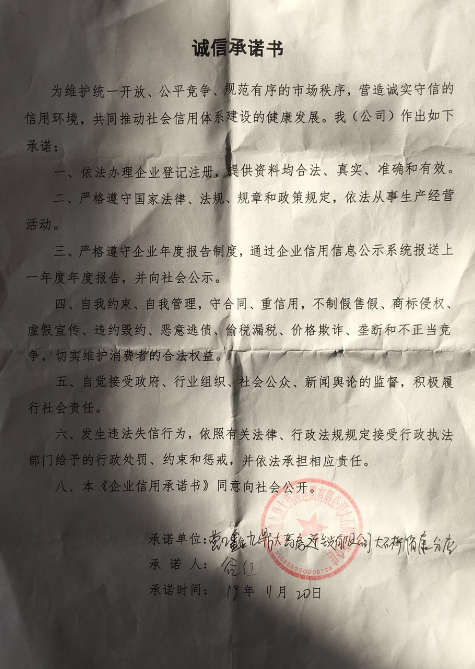 诚信承诺书
为维护统一开放、公平竞争、规范有序的市场秩序，营造诚实守信的
信用环境，共同推动社会信用体系建设的健康发展。我（公司）作出如下
承诺：
一、依法办理企业登记注册，提供资料均合法、真实、准确和有效。
二、严格遵守国家法律、法规、规章和政策规定，依法从事生产经营
活动。
三、严格遵守企业年度报告制度，通过企业信用信息公示系统报送上
一年度年度报告，并向社会公示。
四、自我约束、自我管理，守合同、重信用，不制假售假、商标侵权、
虚假宣传、违约毁约、恶意逃债、偷税漏税、价格欺诈、垄断和不正当竞
争，切实维护消费者的合法权益。
五、自觉接受政府、行业组织、社会公众、新闻舆论的监督，积极履
行社会责任。
六、发生违法失信行为，依照有关法律、行政法规规定接受行政执法
部门给予的行政处罚、约束和惩戒，并依法承担相应责任。
八、本《企业信用承诺书》同意向社会公开。
承诺单位：营口 大药房连锁有限公司大石桥 分店
承 诺 人：
承诺时间： 19年 11月 20日